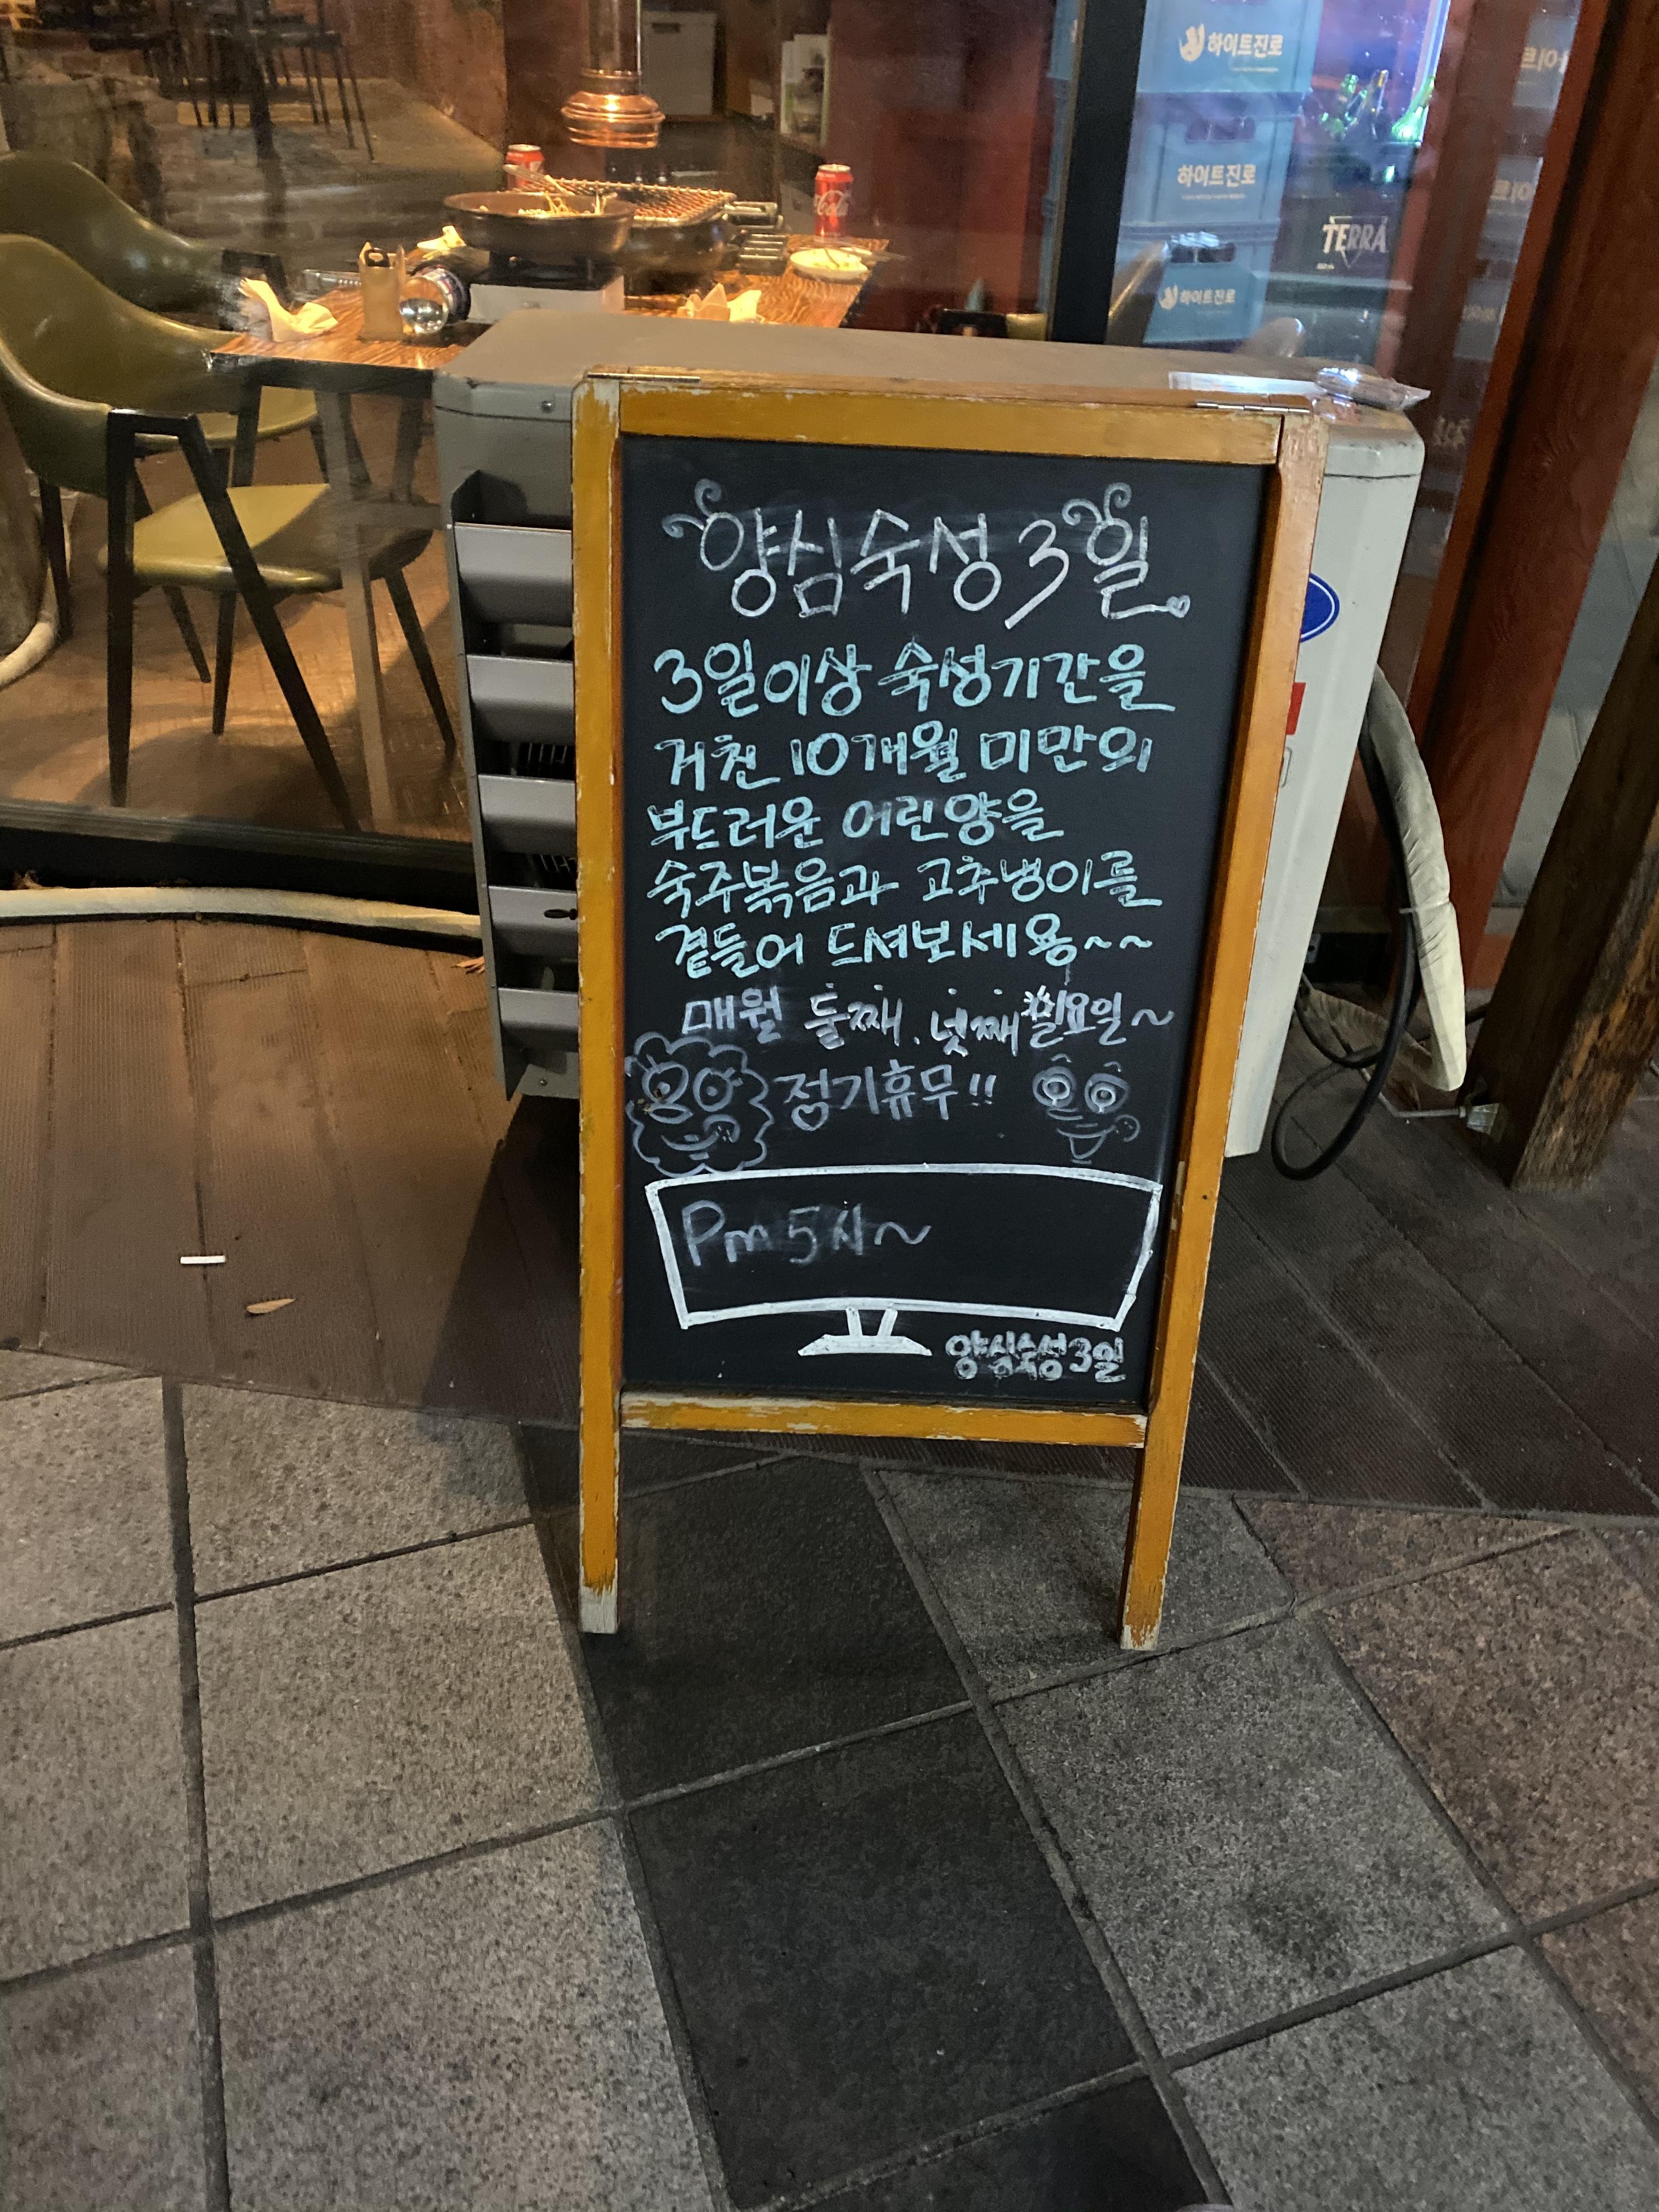 하이트진로
하이트진로
TERRA
하이트진로
양심숙성3일
3일이상 숙성기간을
거친 10개월 미만의
부드러운 어린양을
숙주볶음과 고추냉이를
곁들어 드셔보세용~~
매월 둘째, 넷째 일요일~
정기휴무!!
Pm 5시~
양심숙성3일